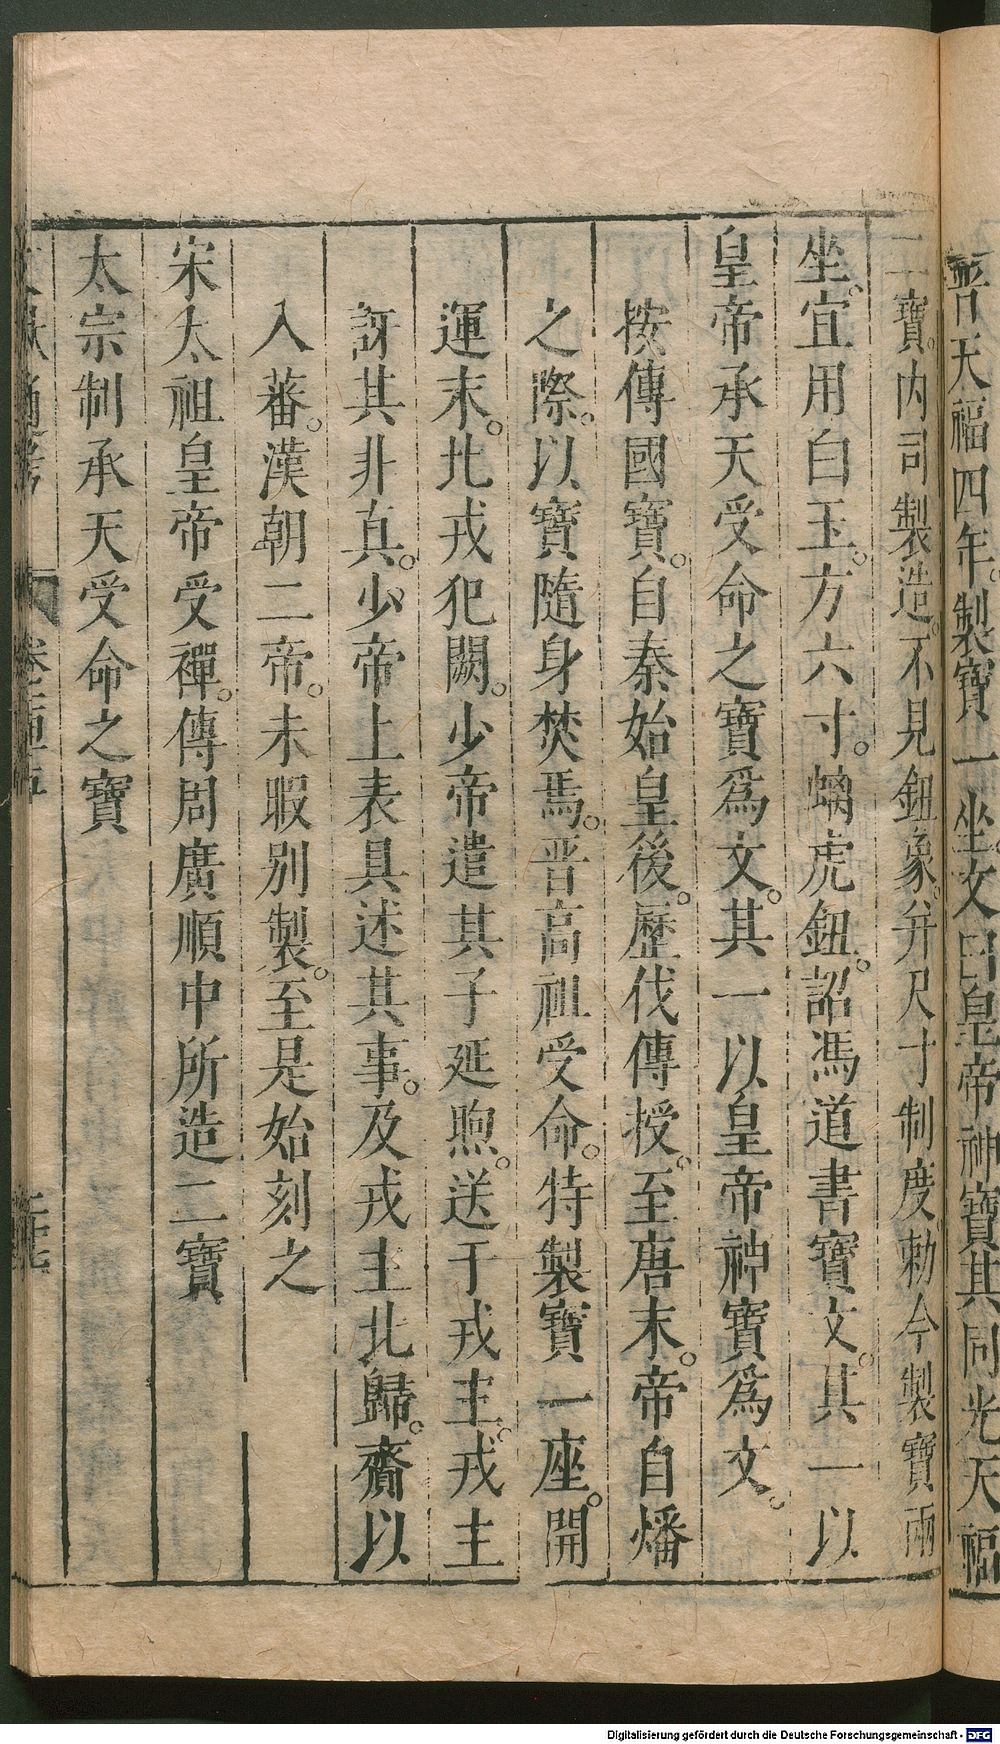 晉天福四年。製寶一坐。文曰皇帝神寶其同光天福
二寶。內司製造。不見鈕象。并尺寸制度。勅今製寶兩
坐。宜用白玉。方六寸。螭虎鈕。詔馮道書寶文。其一以
皇帝承天受命之寶爲文。其一以皇帝神寶爲文。
按傳國寶。自秦始皇後。歷伐傳授。至唐末。帝自燔
之際。以寶隨身焚焉。晉高祖受命。特製寶一座。開
運末。北戎犯闕。少帝遣其子延煦。送于戎主。戎主
訝其非真。少帝上表具述其事。及戎主北歸。齎以
入蕃。漢朝二帝。未暇別製。至是始刻之
宋太祖皇帝受禪。傳周廣順中所造二寶
太宗制承天受命之寶
通考
卷一百十五
Digitalisierung gefördert durch die Deutsche Forschungsgemeinschaft - DFG